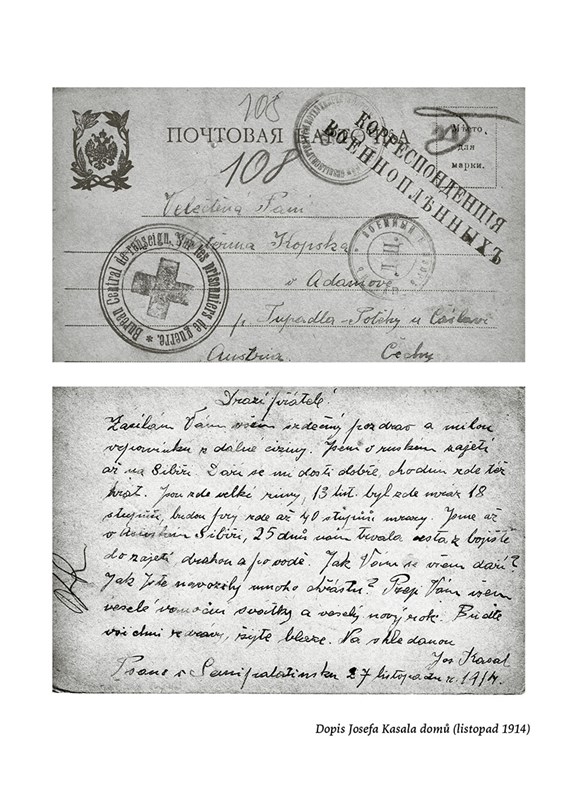 108
ПОЧТОВАЯ КАРТОЧКА
108
Мѣсто
для
марки.
КОРРЕСПОНДЕНЦІЯ
ВОЕННОПЛѢННЫХЪ
Velectěná Paní
Kopska
v Adamově
p. Tupadla-Potěhy u Čáslavi
Austria. Čechy
Bureau Central de renseign. sur les prisonniers de guerre.
Drazí přátelé
Zasílám Vám všem srdečný pozdrav a milou
vzpomínku z dálné ciziny. Jsem v ruském zajetí
až na Sibiři. Daří se mi dosti dobře, chodím zde též
hrát. Jsou zde velké zimy, 13 list. byl zde mráz 18
stupňů, budou prý zde až 40 stupňů mrazy. Jsme až
v Sibiři, 25 dnů nám trvala cesta z bojiště
do zajetí, drahou a po vodě. Jak Vám se všem daří?
Jak jste navozily mnoho chrástu? Přeji Vám všem
veselé vánoční svátky a veselý nový rok. Buďte
všichni zdrávi, žijte blaze. Na shledanou
Jos Kasal
Psáno v Semipalatinsku 27 listopadu r. 1914.
Dopis Josefa Kasala domů (listopad 1914)